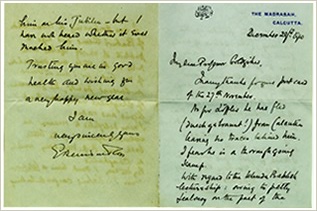 him on his Jubilee - but I
have not heard whether it ever
reached him.
Trusting you are in good
health and wishing you
a very happy new year
I am
very sincerely yours
E Denison Ross
THE MADRASAH,
CALCUTTA.
December
My dear Professor Goldziher,
Many thanks for your post card
of the 27th November
As for he has fled
(durchgebrannt!) from Calcutta
leaving no traces behind him.
I fear he is a thorough-going
Scamp.
With regard to the
lectureship: owing to petty
jealousy on the part of the